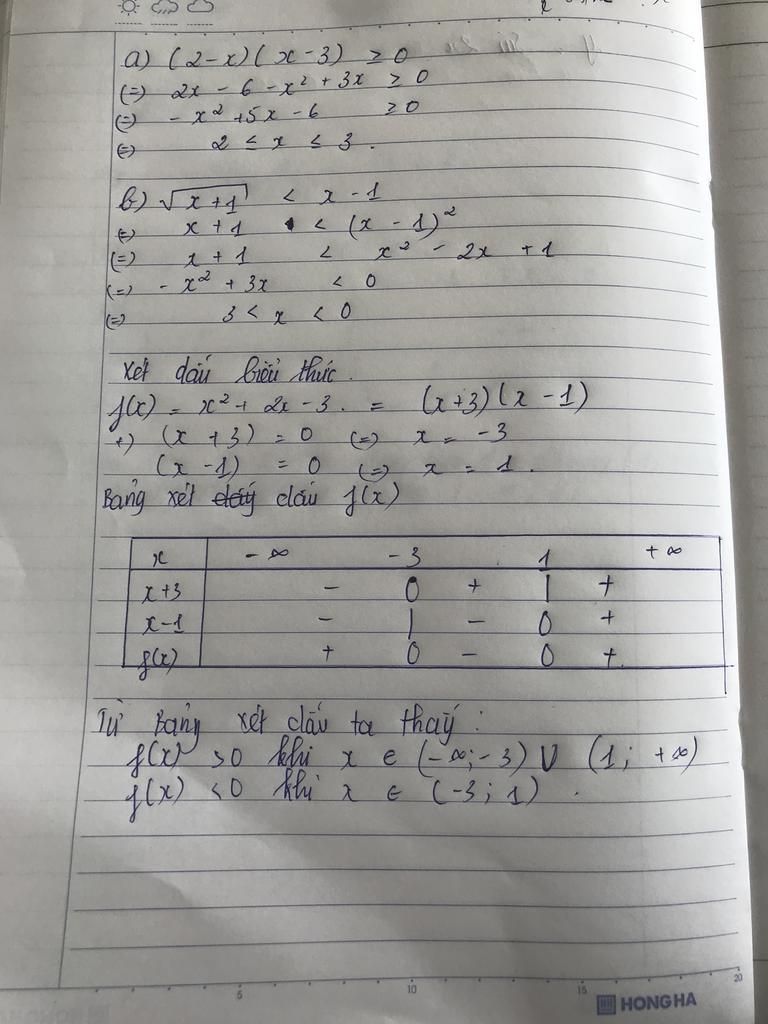 a) (2-x)(x-3) ≥ 0
(=) 2x - 6 - x² + 3x ≥ 0
(=) - x² + 5x - 6 ≥ 0
(=) 2 ≤ x ≤ 3.
b) √(x+1) < x - 1
(=) x + 1 < (x - 1)²
(=) x + 1 < x² - 2x + 1
(=) - x² + 3x < 0
(=) 3 < x < 0
Xét dấu biểu thức.
f(x) = x² + 2x - 3. = (x+3)(x-1)
+) (x + 3) = 0 (=) x = -3
(x - 1) = 0 (=) x = 1.
Bảng xét dấu f(x)
x -∞ -3 1 +∞
x+3 - 0 + | +
x-1 - | - 0 +
f(x) + 0 - 0 +
Từ bảng xét dấu ta thấy:
f(x) > 0 khi x ∈ (-∞;-3) U (1; +∞)
f(x) < 0 khi x ∈ (-3; 1).
5 10 15 20
HONG HA